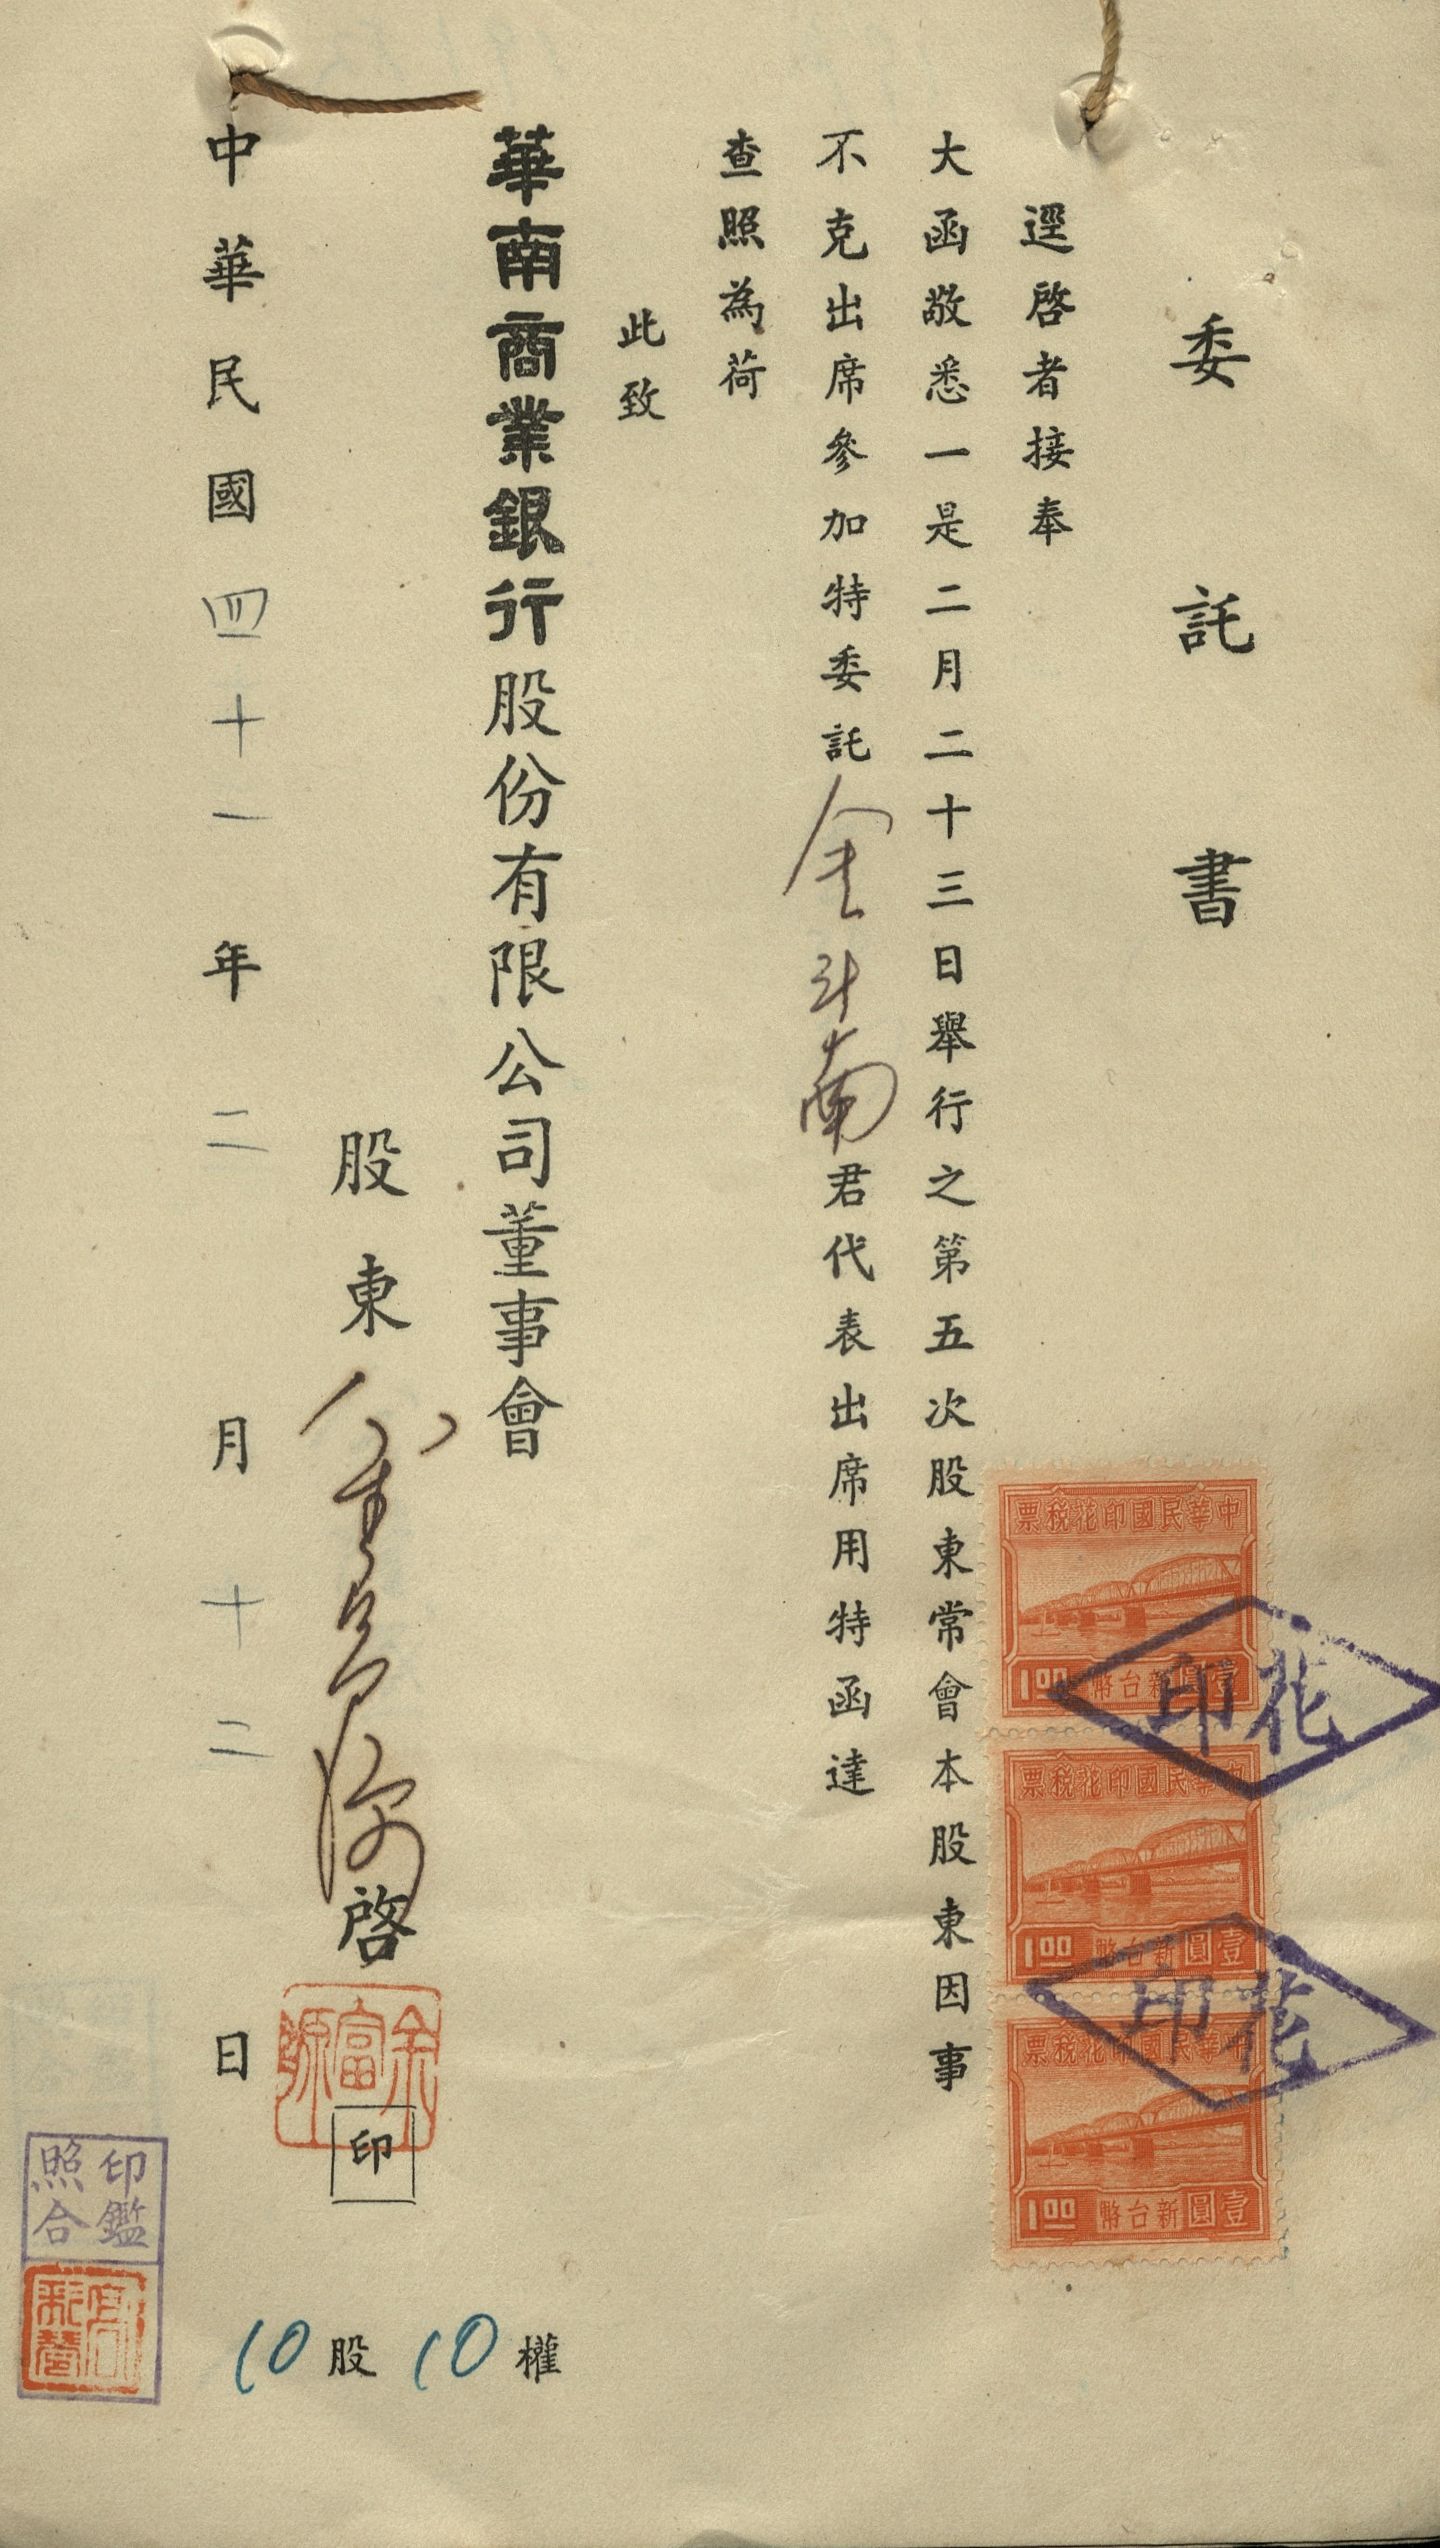 委託書
逕啓者接奉
大函敬悉一是二月二十三日舉行之第五次股東常會本股東因事
不克出席參加特委託金斗南君代表出席用特函達
查照為荷
此致
華南商業銀行股份有限公司董事會
股東余富源啓
余富源
印
中華民國四十一年二月十二日
10股10權
印鑑
照合
中華民國印花稅票
1.00 壹圓新台幣
中華民國印花稅票
1.00 壹圓新台幣
中華民國印花稅票
1.00 壹圓新台幣
花印
花印